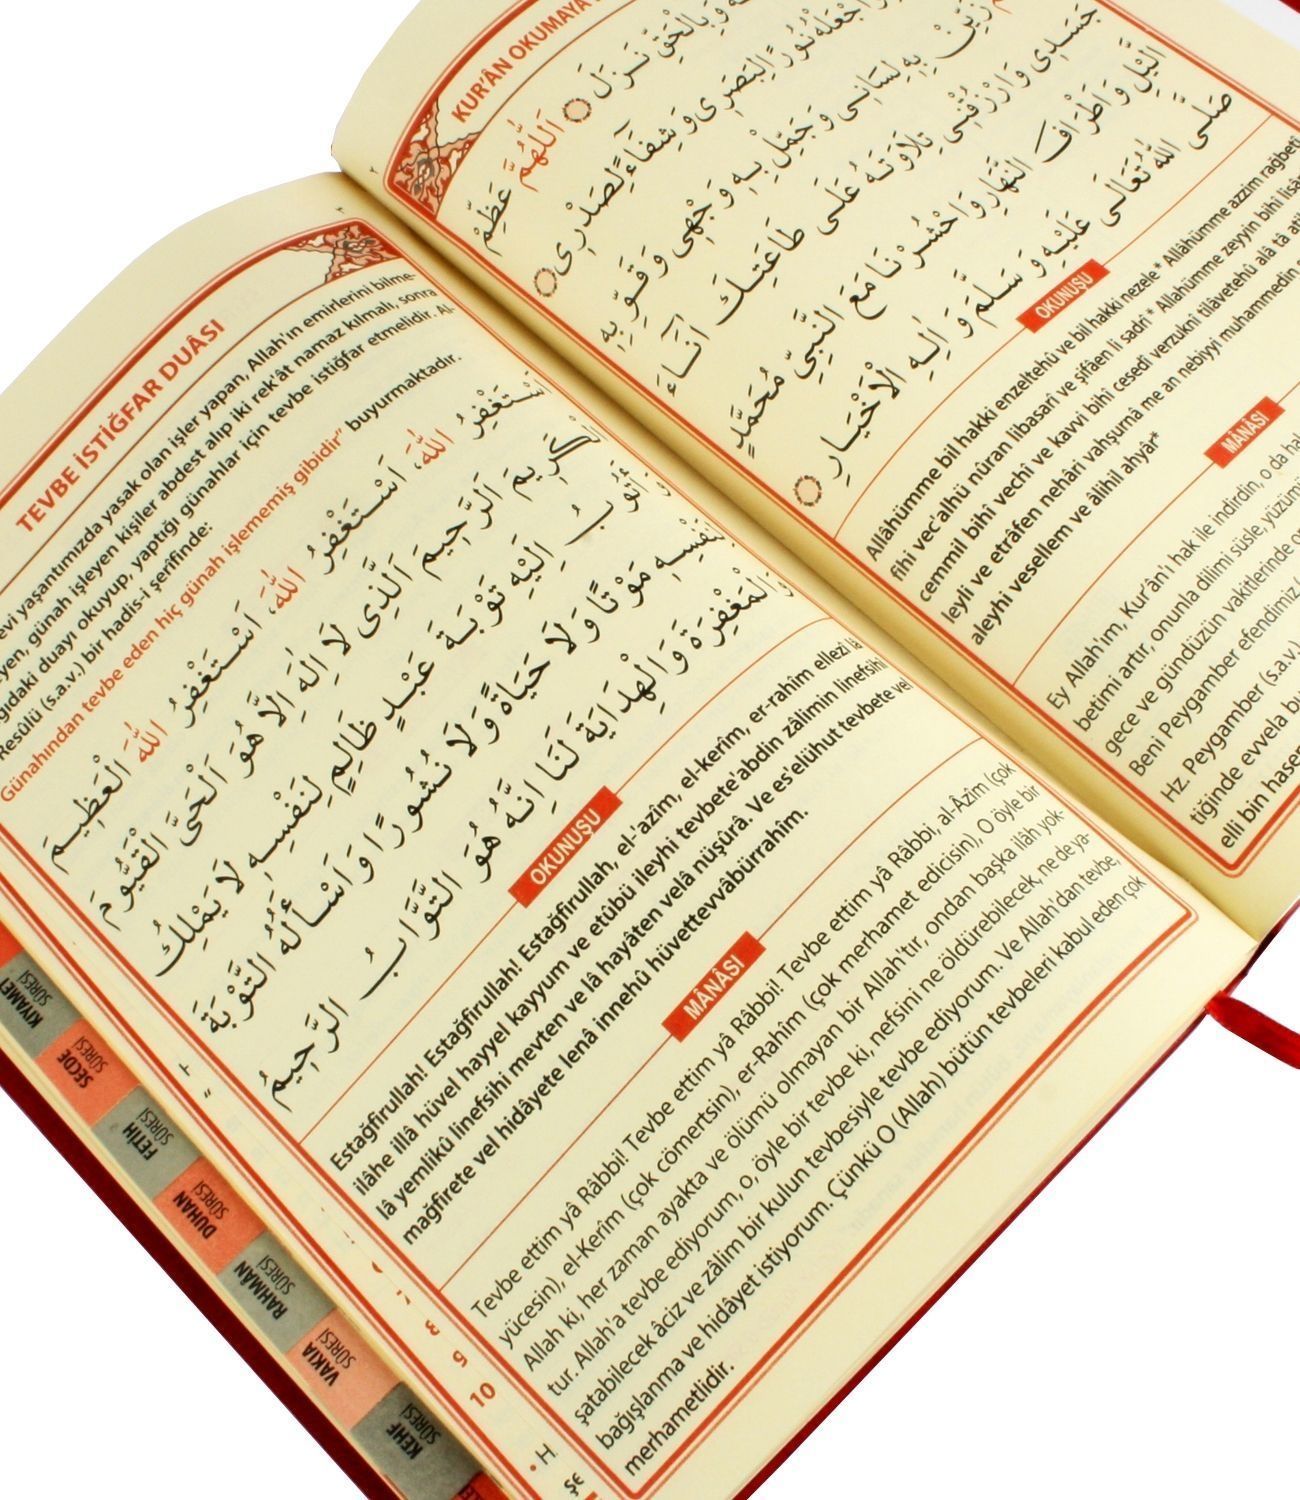 TEVBE İSTİĞFAR DUÂSI
evi yaşantımızda yasak olan işler yapan, Allah'ın emirlerini bilme-
yen, günah işleyen kişiler abdest alıp iki rek'ât namaz kılmalı, sonra
ğıdaki duayı okuyup, yaptığı günahlar için tevbe istiğfar etmelidir. Al-
Resûlü (s.a.v.) bir hadis-i şerifinde:
Günahından tevbe eden hiç günah işlememiş gibidir" buyurmaktadır.
اَسْتَغْفِرُ اللّٰهَ، اَسْتَغْفِرُ اللّٰهَ، اَسْتَغْفِرُ اللّٰهَ الْعَظِيمَ
الْكَرِيمَ اَلرَّحِيمَ اَلَّذِى لَا اِلٰهَ اِلَّا هُوَ اَلْحَىَّ الْقَيُّومَ
وَاَتُوبُ اِلَيْهِ تَوْبَةَ عَبْدٍ ظَالِمٍ لِنَفْسِهِ لَا يَمْلِكُ
لِنَفْسِهِ مَوْتًا وَلَا حَيَاةً وَلَا نُشُورًا وَاَسْأَلُهُ التَّوْبَةَ
وَالْمَغْفِرَةَ وَالْهِدَايَةَ لَنَا اِنَّهُ هُوَ التَّوَّابُ الرَّحِيمُ
OKUNUŞU
Estağfirullah! Estağfirullah! Estağfirullah, el-'azîm, el-kerîm, er-rahîm ellezî lâ
ilâhe illâ hüvel hayyel kayyum ve etûbü ileyhi tevbete'abdin zâlimin linefsihî
lâ yemlikû linefsihi mevten ve lâ hayâten velâ nüşûrâ. Ve es'elühut tevbete vel
mağfirete vel hidâyete lenâ innehû hüvettevvâbürrahîm.
MÂNÂSI
Tevbe ettim yâ Râbbi! Tevbe ettim yâ Râbbi! Tevbe ettim yâ Râbbi, al-Âzîm (çok
yücesin), el-Kerîm (çok cömertsin), er-Rahîm (çok merhamet edicisin), O öyle bir
Allah ki, her zaman ayakta ve ölümü olmayan bir Allah'tır, ondan başka ilâh yok-
tur. Allah'a tevbe ediyorum, o, öyle bir tevbe ki, nefsini ne öldürebilecek, ne de ya-
şatabilecek âciz ve zâlim bir kulun tevbesiyle tevbe ediyorum. Ve Allah'dan tevbe,
bağışlanma ve hidâyet istiyorum. Çünkü O (Allah) bütün tevbeleri kabul eden çok
merhametlidir.
KIYAMET SÛRESİ
SECDE SÛRESİ
FETİH SÛRESİ
DUHAN SÛRESİ
RAHMÂN SÛRESİ
VAKIA SÛRESİ
KEHF SÛRESİ
9
10
٢
KUR'ÂN OKUMAYA
وَبِالْحَقِّ نَزَلَ اَللّٰهُمَّ عَظِّمْ
وَاجْعَلْهُ نُورًا لِبَصَرِى وَشِفَاءً لِصَدْرِى
زَيِّنْ بِهِ لِسَانِى وَجَمِّلْ بِهِ وَجْهِى وَقَوِّ بِهِ
جَسَدِى وَارْزُقْنِى تِلَاوَتَهُ عَلَى طَاعَتِكَ اٰنَاءَ
الَّيْلِ وَاَطْرَافَ النَّهَارِ وَاحْشُرْنَا مَعَ النَّبِىِّ مُحَمَّدٍ
صَلَّى اللّٰهُ تَعَالَى عَلَيْهِ وَسَلَّمَ وَاٰلِهِ الْاَخْيَارِ
OKUNUŞU
Allâhümme bil hakki enzeltehû ve bil hakki nezele* Allâhümme azzim rağbetî
fihi vec'alhü nûran libasarî ve şifâen li sadrî* Allahümme zeyyin bihî lisânî
cemmil bihî vechi ve kavvi bihî cesedî verzuknî tilâvetehû alâ tâ
leyli ve etrâfen nehâri vahşurnâ me an nebiyyi muhammedin
aleyhi vesellem ve âlihil ahyâr*
MÂNÂSI
Ey Allah'ım, Kur'ân'ı hak ile indirdin, o da
betimi artır, onunla dilimi süsle, yüzümü
gece ve gündüzün vakitlerinde
Beni Peygamber efendimiz
Hz. Peygamber (s.a.v.)
tiğinde evvela
elli bin